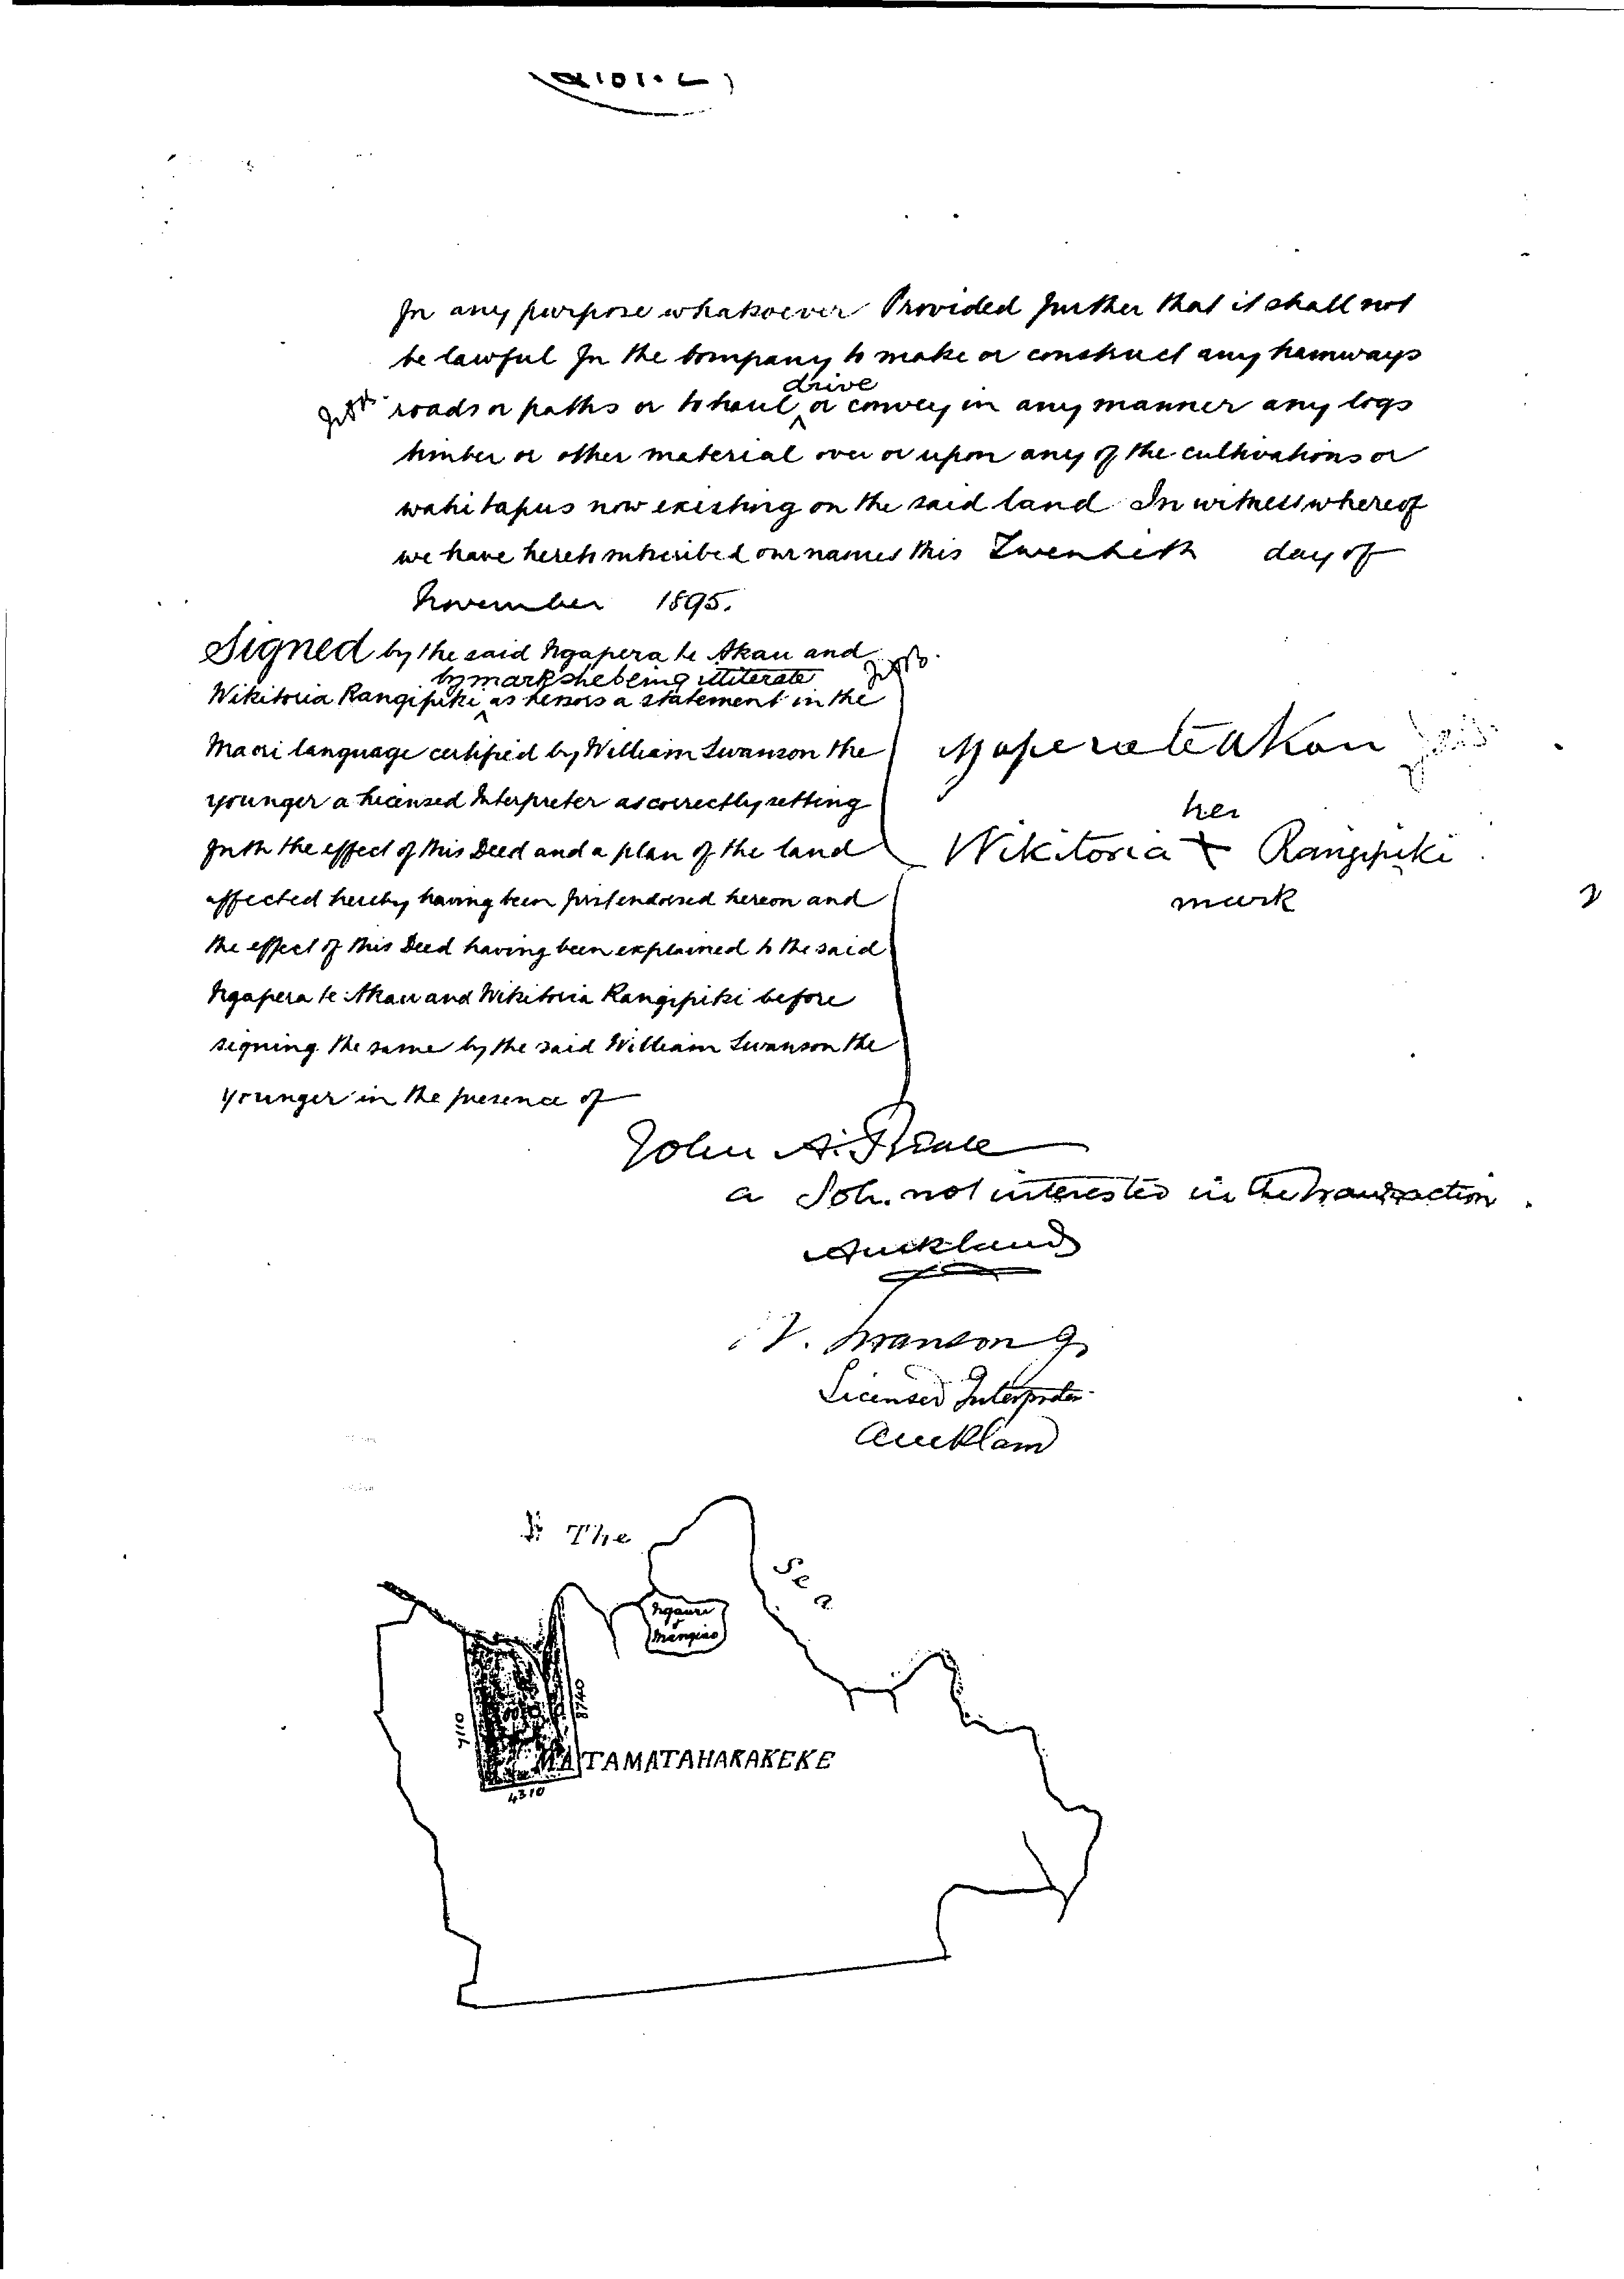 for any purpose whatsoever Provided further that it shall not
be lawful for the Company to make or construct any tramways
drive
roads or paths or to haul ^ or convey in any manner any logs
timber or other material over or upon any of the cultivations or
wahi tapus now existing on the said land In witness whereof
we have hereto subscribed our names this Twentieth day of
November 1895.
Signed by the said Ngapera te Akau and
by mark she being illiterate
Wikitoria Rangipiki ^ as hereto a statement in the
Maori language certified by William Swanson the
younger a Licensed Interpreter as correctly setting
forth the effect of this Deed and a plan of the land
affected hereby having been first endorsed hereon and
the effect of this Deed having been explained to the said
Ngapera te Akau and Wikitoria Rangipiki before
signing the same by the said William Swanson the
younger in the presence of
Ngaperateakau
her
Wikitoria + Rangipiki
mark
John A.
a Solr. not interested in the transaction
Auckland
W. Swanson Jr
Licensed Interpreter
Auckland
The
Sea
Ngauri
Mangiao
7110
8740
4310
MATAMATAHARAKEKE